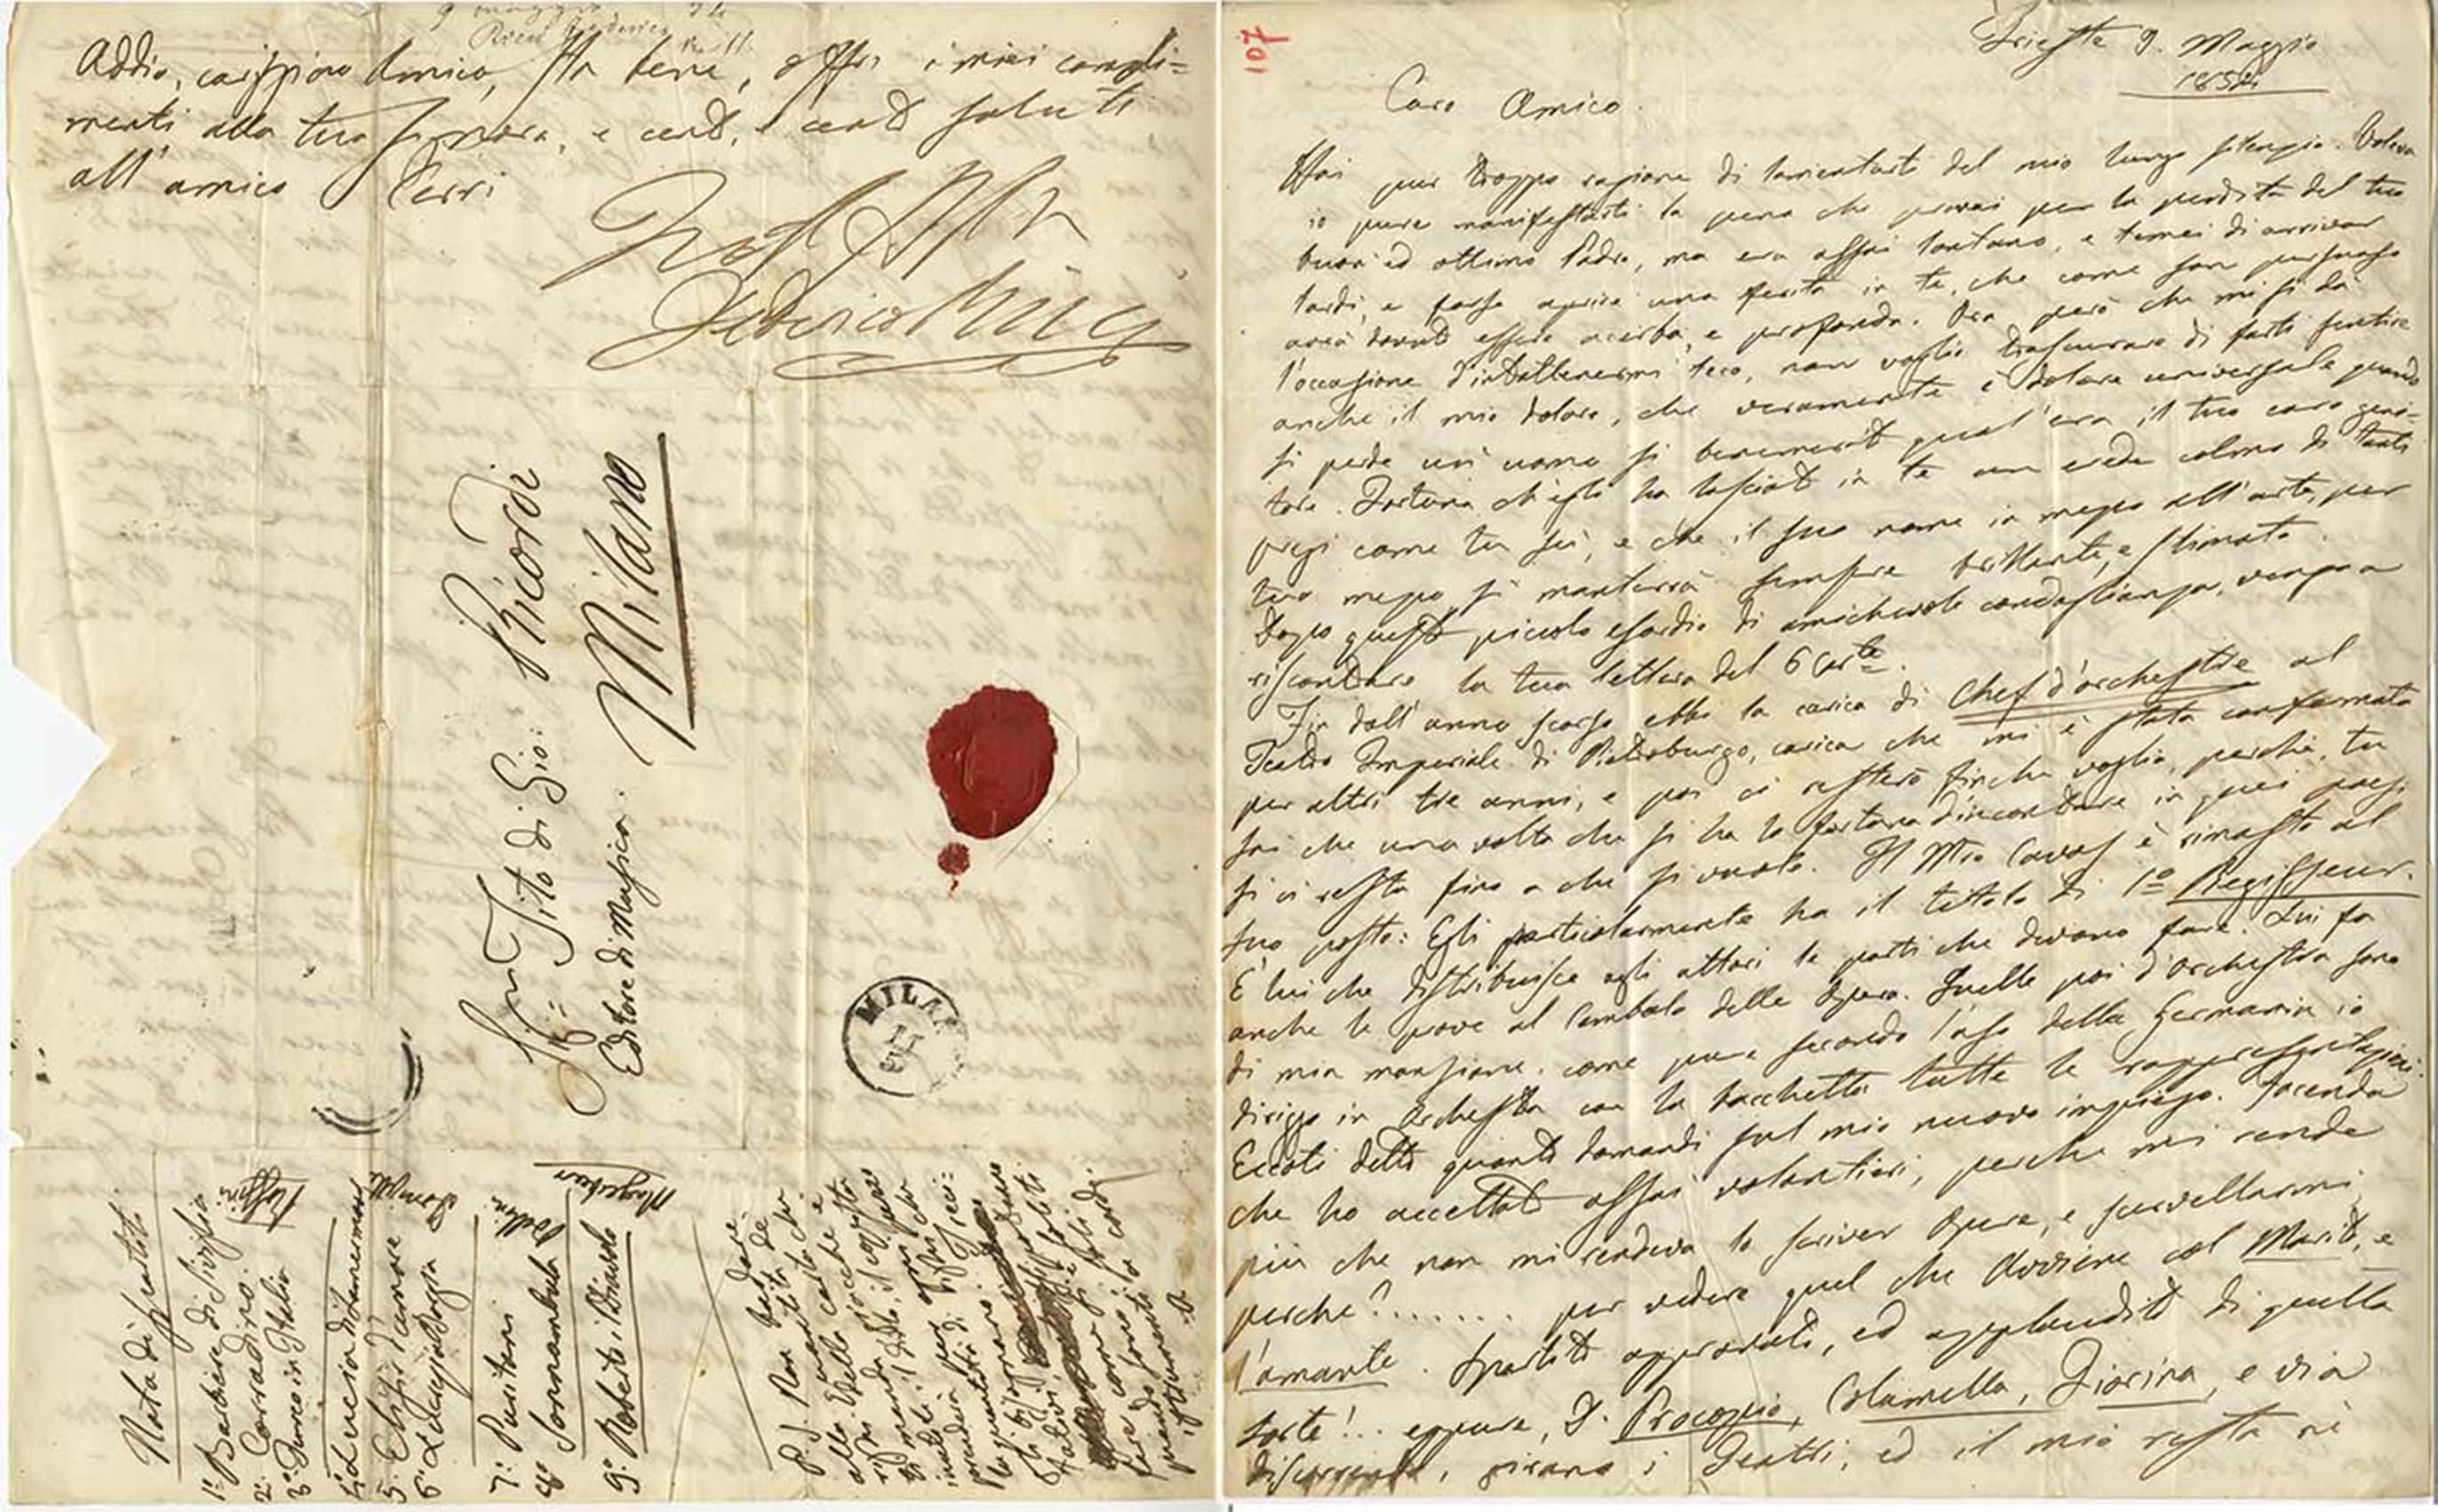 107
Trieste 9. Maggio
1853
Caro Amico.
Hai pur troppo ragione di lamentarti del mio lungo silenzio. Voleva
io pure manifestarti la pena che provai per la perdita del tuo
buon' ed ottimo Padre, ma era assai lontano, e temei di arrivar
tardi, e forse aprire una ferita in te, che come son persuaso
avrà dovuto essere acerba, e profonda. Ora però che mi si dà
l'occasione d'intrattenermi teco, non voglio trascurare di farti sentire
anche il mio dolore, che veramente è dolore universale quando
si perde un' uomo sì benemerito qual'era il tuo caro geni-
tore. Fortuna ch'egli ha lasciato in te un erede colmo di tanti
pregi come tu sei, e che il suo nome in mezzo all'arte, per
tuo mezzo si manterrà sempre brillante, e stimato.
Dopo questo piccolo esordio di amichevole condoglianza, vengo a
riscontrare la tua lettera del 6 Corte.
Fin dall'anno scorso ebbi la carica di Chef d'orchestre al
Teatro Imperiale di Pietroburgo, carica che mi è stata confermata
per altri tre anni, e poi ci resterò finchè voglio, perchè, tu
sai che una volta che si ha la fortuna d'incontrare in quei paesi
si ci resta fino a che si vuole. Il Mro Cavos è rimasto al
suo posto: Egli particolarmente ha il titolo di 1o Regisseur.
È lui che distribuisce agli attori le parti che devono fare. Lui fa
anche le prove al Cembalo delle Opere. Quelle poi d'orchestra sono
di mia mansione, come pure secondo l'uso della Germania io
dirigo in Orchestra con la bacchetta tutte le rappresentazioni.
Eccoti detto quanto domandi sul mio nuovo impiego. Facenda
che ho accettato assai volontieri, perchè mi rende
più che non mi rendeva lo scriver Opere, e scervellarmi,
perchè?....... per vedere quel che avviene col Marito, e
l'amante. Spartito approvato, ed applaudito di quella
sorte!.. eppure, D. Procopio, Columella, Fiorina, e via
discorrendo, girano i Teatri, ed il mio resta nè
9 maggio
Ricci Federico
Addio, carissimo Amico, sta bene, offri i miei compli=
menti alla tua Signora, e cento, e cento saluti
all' amico Perri
Federico Ricci
Tito di Gio: Ricordi
Editore di Musica.
Milano
MILANO
11
Nota di spartiti
1o Barbiere di Siviglia
2o Corradino.
3o Turco in Italia
Rossini
4o Lucia di Lamermoor
5o Elisir d'amore
6o Lucrezia Borgia
Donizetti
7o Puritani
8o Sonnambula
Bellini
9o Roberto il Diavolo
Mayerbeer